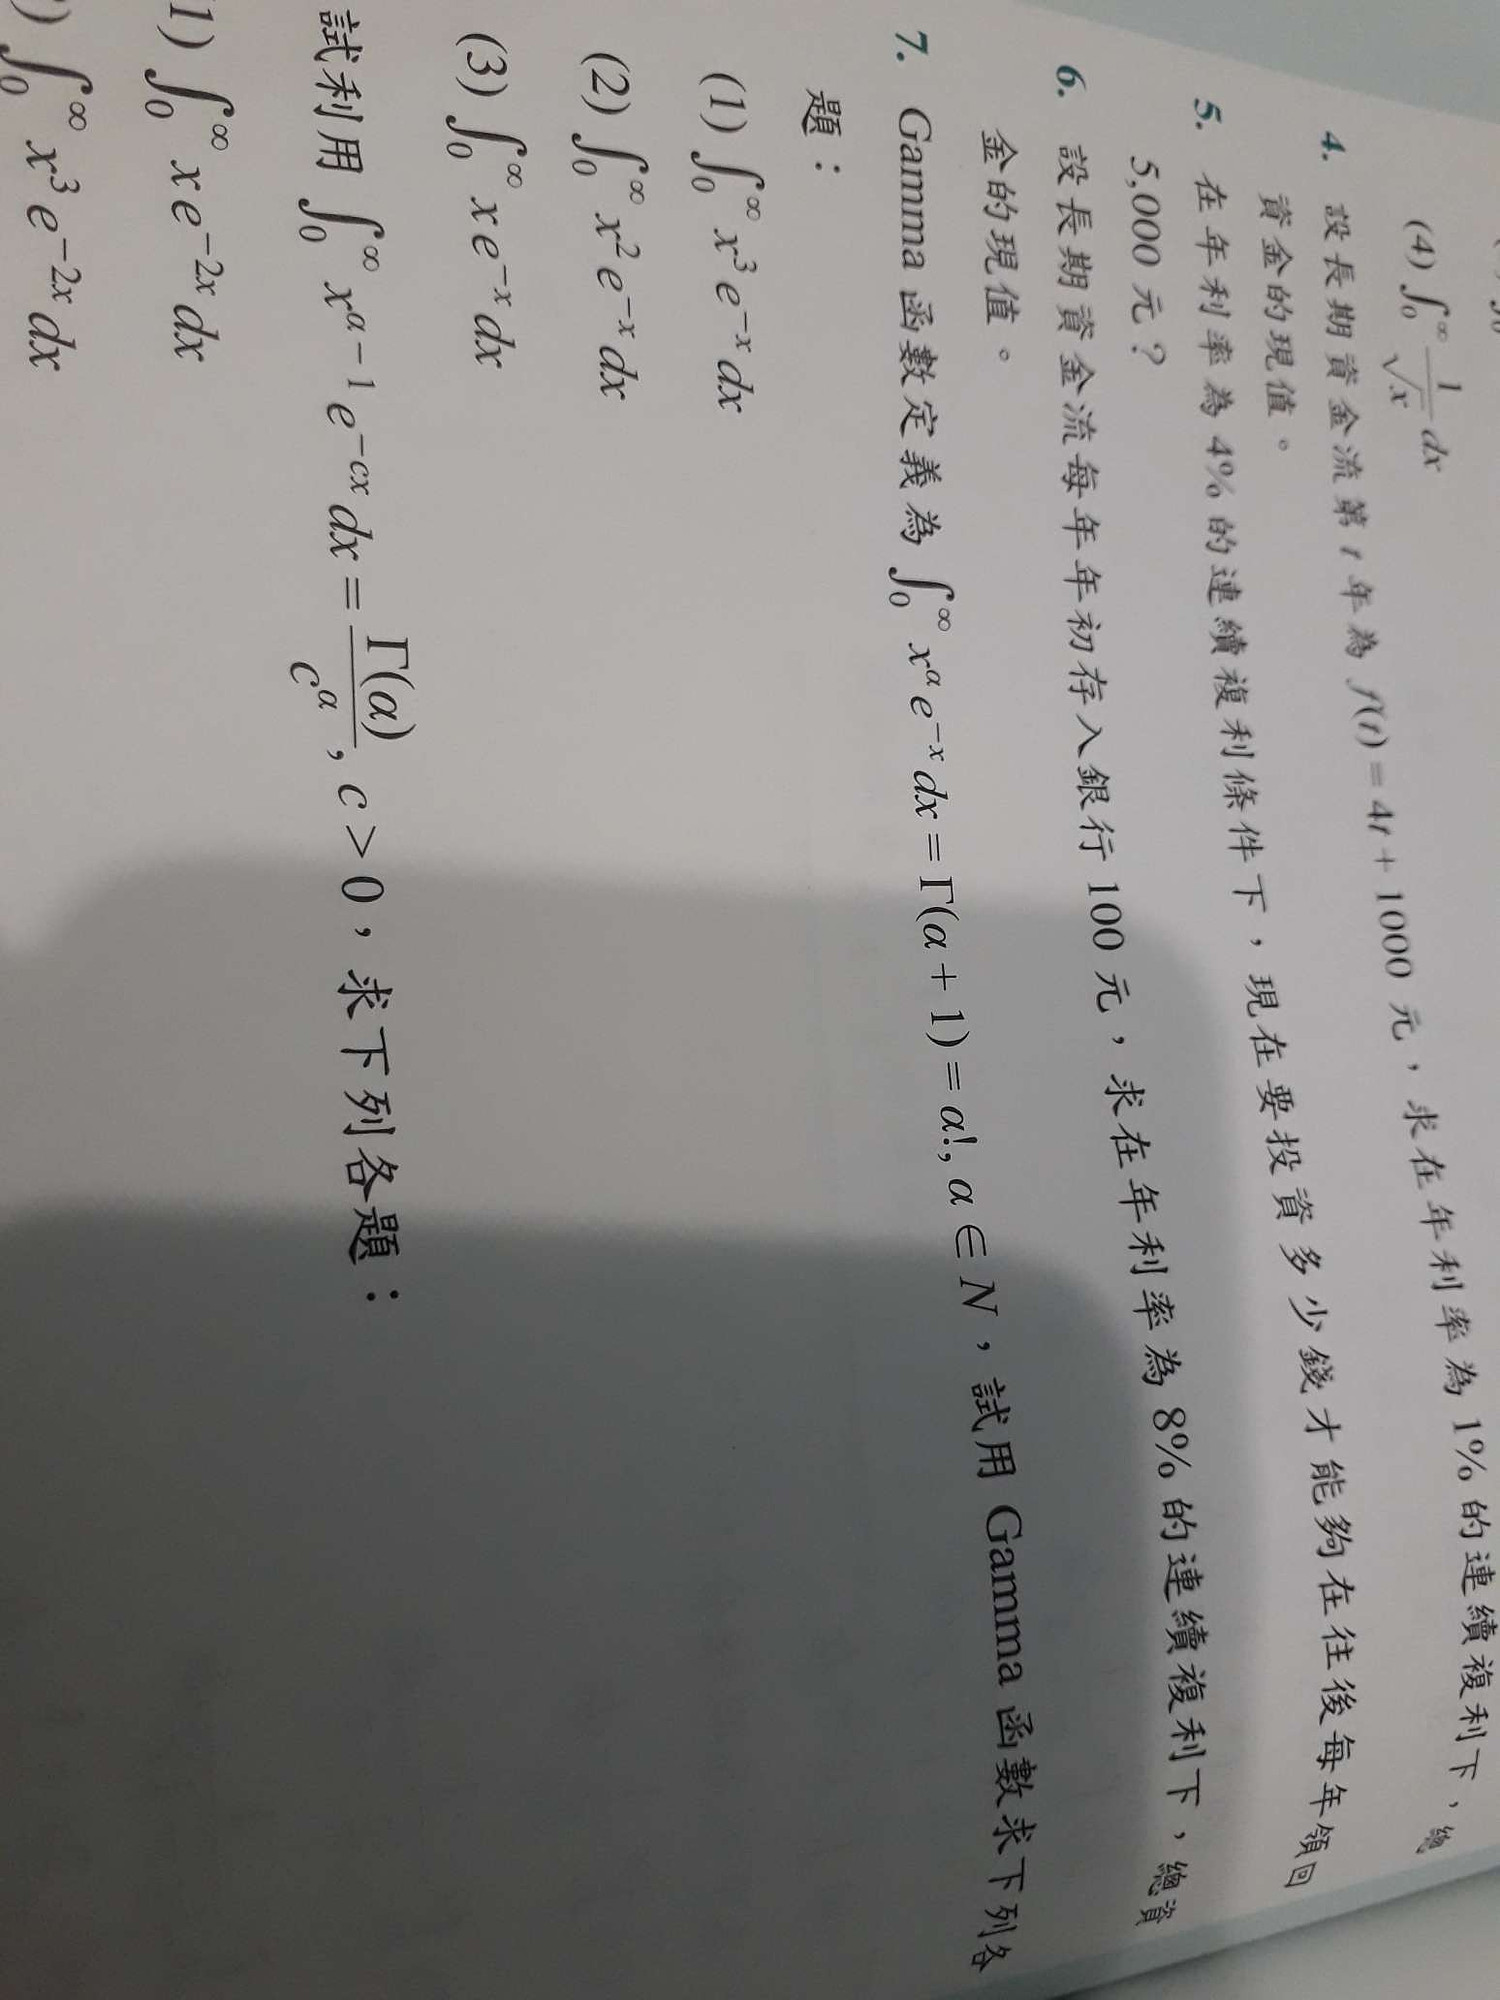 (4) ∫₀^∞ 1/√x dx
4. 設長期資金流第 t 年為 f(t) = 4t + 1000 元，求在年利率為 1% 的連續複利下，總
資金的現值。
5. 在年利率為 4% 的連續複利條件下，現在要投資多少錢才能夠在往後每年領回
5,000 元？
6. 設長期資金流每年年初存入銀行 100 元，求在年利率為 8% 的連續複利下，總資
金的現值。
7. Gamma 函數定義為 ∫₀^∞ x^α e^{−x} dx = Γ(α + 1) = α!, α ∈ N，試用 Gamma 函數求下列各
題：
(1) ∫₀^∞ x³ e^{−x} dx
(2) ∫₀^∞ x² e^{−x} dx
(3) ∫₀^∞ x e^{−x} dx
試利用 ∫₀^∞ x^{α−1} e^{−cx} dx = Γ(α)/c^α, c > 0，求下列各題：
1) ∫₀^∞ x e^{−2x} dx
) ∫₀^∞ x³ e^{−2x} dx